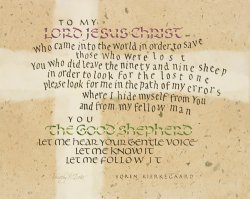 TO MY
LORD JESUS CHRIST
who came into the world in order to save
those who were lost
You who did leave the ninety and nine sheep
in order to look for the lost one
please look for me in the path of my errors
where I hide myself from You
and from my fellow man
YOU
THE GOOD SHEPHERD
LET ME HEAR YOUR GENTLE VOICE
LET ME KNOW IT
LET ME FOLLOW IT
SØREN KIERKEGAARD